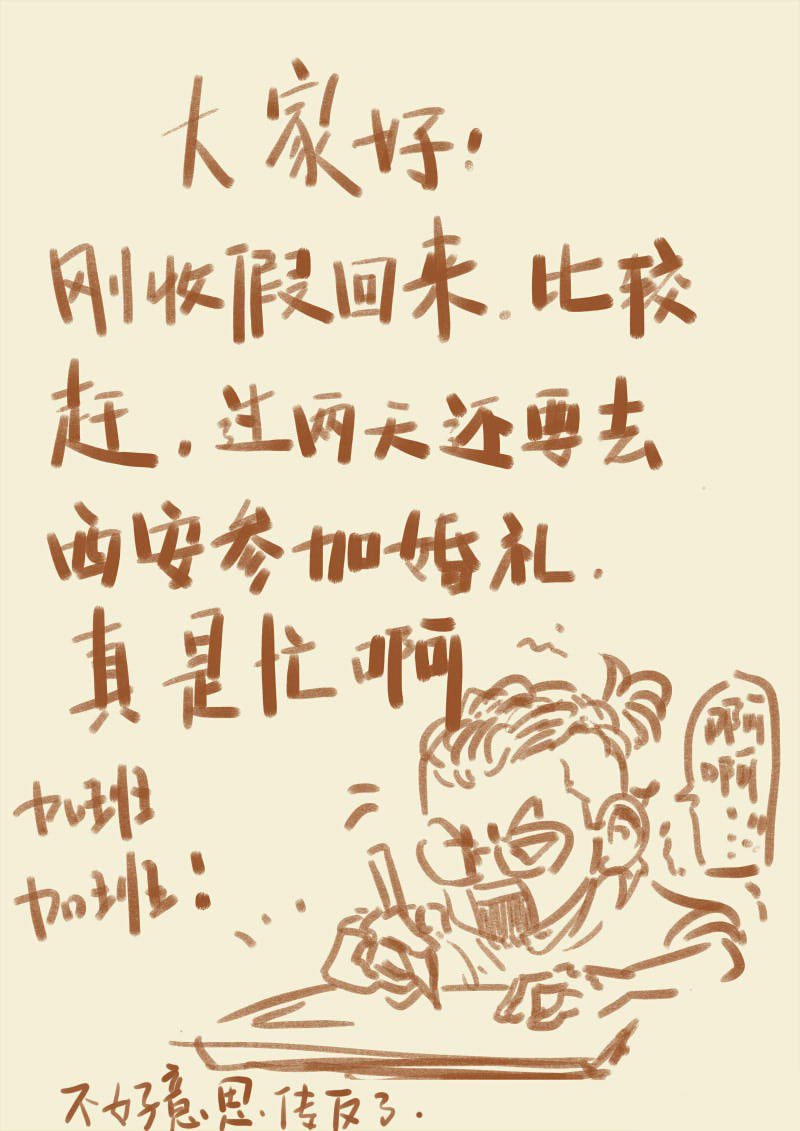 大家好！
刚收假回来.比较
赶，过两天还要去
西安参加婚礼.
真是忙啊
啊啊
啊啊
……
加班
加班！
不好意思.传反了.